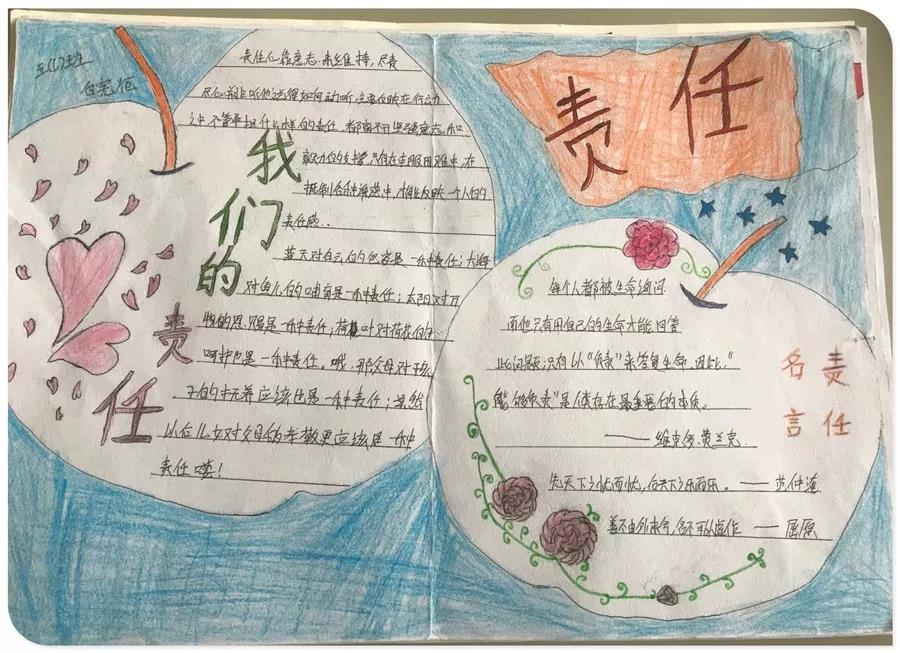 五(1)班
责任
我们的
责任
责任心靠意志来维持，尽责
尽心并非听他说得如何动听，主要反映在行动
之中。不管承担什么样的责任，都离不开坚强意志和
毅力的支撑，只有在克服困难中，在
抵制各种诱惑中，才能反映一个人的
责任感。
蓝天对白云的包容是一种责任；大海
对鱼儿的哺育是一种责任；太阳对万
物的恩赐是一种责任；荷叶对荷花的
呵护也是一种责任。哦，那父母对孩
子的抚养应该也是一种责任；虽然
以后儿女对父母的孝敬更应该是一种
责任喽！
责任
名言
每个人都被生命询问
而他只有用自己的生命才能回答
此问题；只有以“负责”来答复生命。因此，“
能够负责”是人类存在最重要的本质。
——维克多·费兰克
先天下之忧而忧，后天下之乐而乐。——范仲淹
善不由外来兮，名不可以虚作 ——屈原